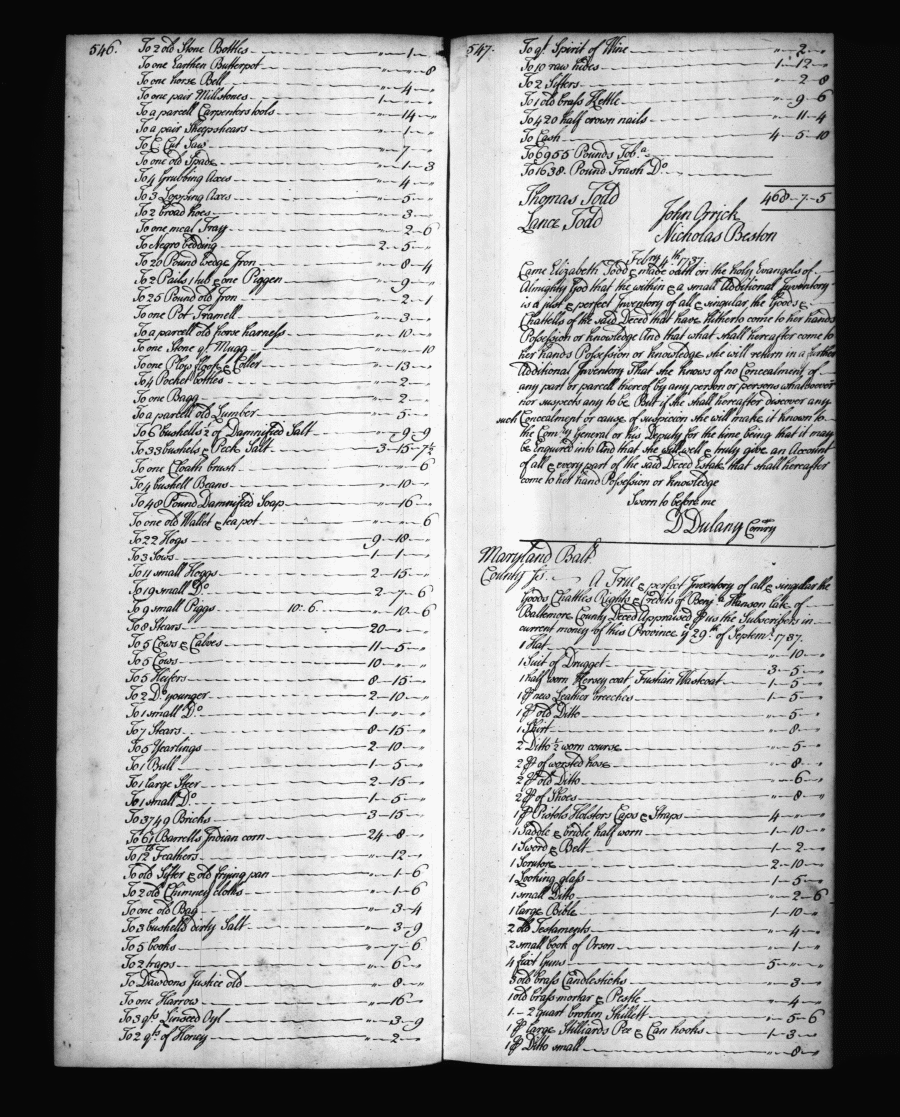 546.
To 2 old Stone Bottles " 1 "
To one Earthen Butterpot " " 8
To one horse Bell " 4 "
To one pair Millstones 1 " "
To a parcell Carpenters tools " 14 "
To a pair Sheepshears " 1 "
To C Cut Saw " 7 "
To one old Spade " 1 3
To 4 Grubbing Axes " 4 "
To 3 Lopping Axes " 5 "
To 2 broad hoes " 3 "
To one meal Tray " 2 6
To Negro bedding 2 5 "
To 20 Pound wedge Iron " 8 4
To 2 Pails 1 tub & one Piggen " 9 "
To 25 Pound old Iron " 2 1
To one Pot Tramell " 3 "
To a parcell old horse harness " 10 "
To one Stone qt. Mugg " " 10
To one Plow & Coller " 13 "
To 4 Pocket bottles " 2 "
To one Bagg " 2 "
To a parcell old Lumber " 5 "
To 6 bushells ½ of Damnified Salt " 9 9
To 33 bushels & Peck Salt 3 15 7½
To one Cloath brush " " 6
To 4 bushell Beans " 10 "
To 48 Pound Damnified Soap " 16 "
To one old Wallet & tea pot " " 6
To 22 Hogs 9 18 "
To 3 Sows 1 1 "
To 11 small Hoggs 2 15 "
To 19 small Do. 2 7 6
To 9 small Piggs 10: 6 " 10 6
To 8 Stears 20 " "
To 5 Cows & Calves 11 5 "
To 5 Cows 10 " "
To 5 Heifers 8 15 "
To 2 Do. younger 2 10 "
To 1 small Do. 1 " "
To 7 Stears 8 15 "
To 5 Yearlings 2 10 "
To 1 Bull 1 5 "
To 1 large Steer 2 15 "
To 1 small Do. 1 5 "
To 3749 Bricks 3 15 "
To 61 Barrells Indian corn 24 8 "
To 12 lb Feathers " 12 "
To old Sifter & old frying pan " 1 6
To 2 old Chimney cloths " 1 6
To one old Bag " 3 4
To 3 bushells dirty Salt " 3 9
To 5 books " 7 6
To 2 traps " 6 "
To Dawdons Justice old " 8 "
To one Harrow " 16 "
To 3 qts. Linseed Oyl " 3 9
To 2 qts of Honey " 2 "
547.
To qt. Spirit of Wine " 2 "
To 10 raw hides 1 12 "
To 2 Sifters " 2 8
To 1 old brass Kettle " 9 6
To 420 half crown nails " 11 4
To Cash 4 5 10
To 6955 Pounds Tob.a
To 1638. Pound Trash Do
468-7-5
Thomas Todd
Lance Todd
John Orrick
Nicholas Beston
Febry 4th 1737.
Came Elizabeth Todd & made oath on the holy Evangels of
Almighty God that the within & a small Additional Inventory
is a just & perfect Inventory of all & singular the Goods &
Chattells of the said Deced that have hitherto come to her hands
Possession or knowledge And that what shall hereafter come to
her hands Possession or knowledge she will return in a further
Additional Inventory That she knows of no Concealment of
any part or parcell thereof by any person or persons whatsoever
nor suspects any to be But if she shall hereafter discover any
such Concealment or cause of suspicion she will make it known to
the Comry General or his Deputy for the time being that it may
be Enquired into And that she will well & truly give an Account
of all & every part of the said Deced Estate that shall hereafter
come to her hand Possession or knowledge
Sworn to before me
D Dulany Comry
Maryland Balt
County Ss. A True & perfect Inventory of all & singular the
Goods Chattles Rights & Credits of Benja Hanson late of
Baltemore County Deced Appraised by us the Subscribers in
current money of this Province ye 29th of Septemr. 1737.
1 Hat " 10 "
1 Suit of Drugget 3 5 "
1 half worn Kersey coat Fushian Wastcoat 1 5 "
1 pr new Leather breeches 1 5 "
1 pr old Ditto " 5 "
1 Shirt " 8 "
2 Ditto ½ worn course " 5 "
2 pr of worsted hose " 8 "
2 pr old Ditto " 6 "
2 pr of Shoes " 8 "
1 pr Pistols Holsters Caps & Straps 4 " "
1 Saddle & bridle half worn 1 10 "
1 Sword & Belt 1 2 "
1 Scrutore 2 10 "
1 Looking glass 1 5 "
1 small Ditto " 2 6
1 large Bible 1 10 "
2 old Testaments " 4 "
2 small book of Orsen " 1 "
4 fixt Guns 5 " "
3 old brass Candlesticks " 3 "
1 old brass mortar & Pestle " 4 "
1 - 2 quart broken Skillett " 5 6
1 pr large Stilliards Pee & Can hooks 1 3 "
1 pr Ditto small " 8 "